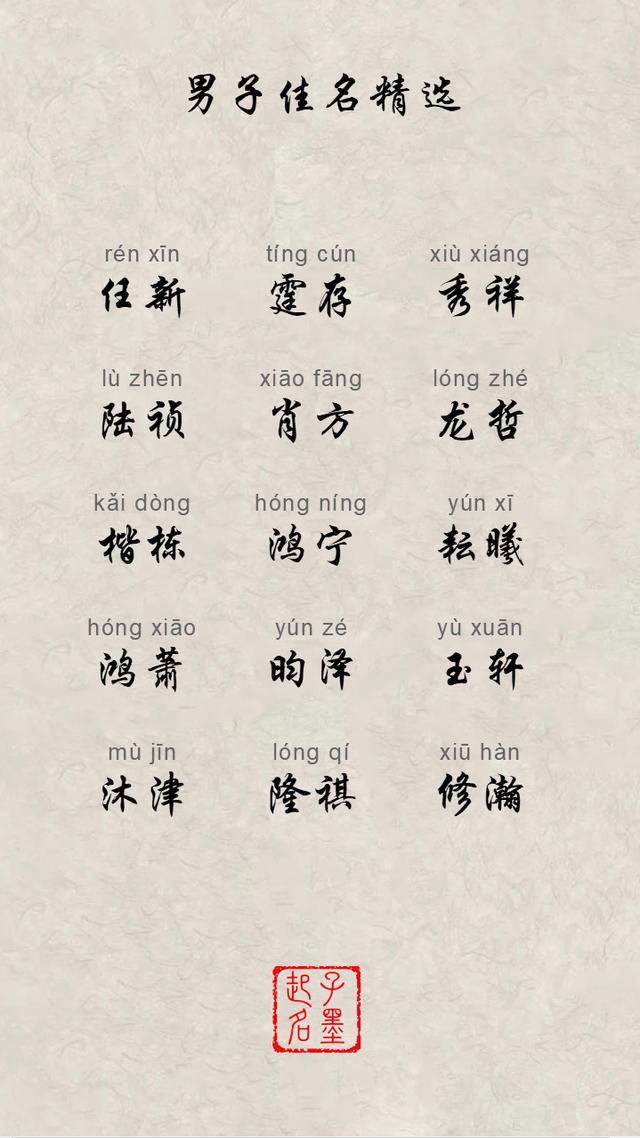 男子佳名精选
rén xīn tíng cún xiù xiáng
任新 霆存 秀祥
lù zhēn xiāo fāng lóng zhé
陆祯 肖方 龙哲
kǎi dòng hóng níng yún xī
楷栋 鸿宁 耘曦
hóng xiāo yún zé yù xuān
鸿萧 昀泽 玉轩
mù jīn lóng qí xiū hàn
沐津 隆祺 修瀚
子墨
起名